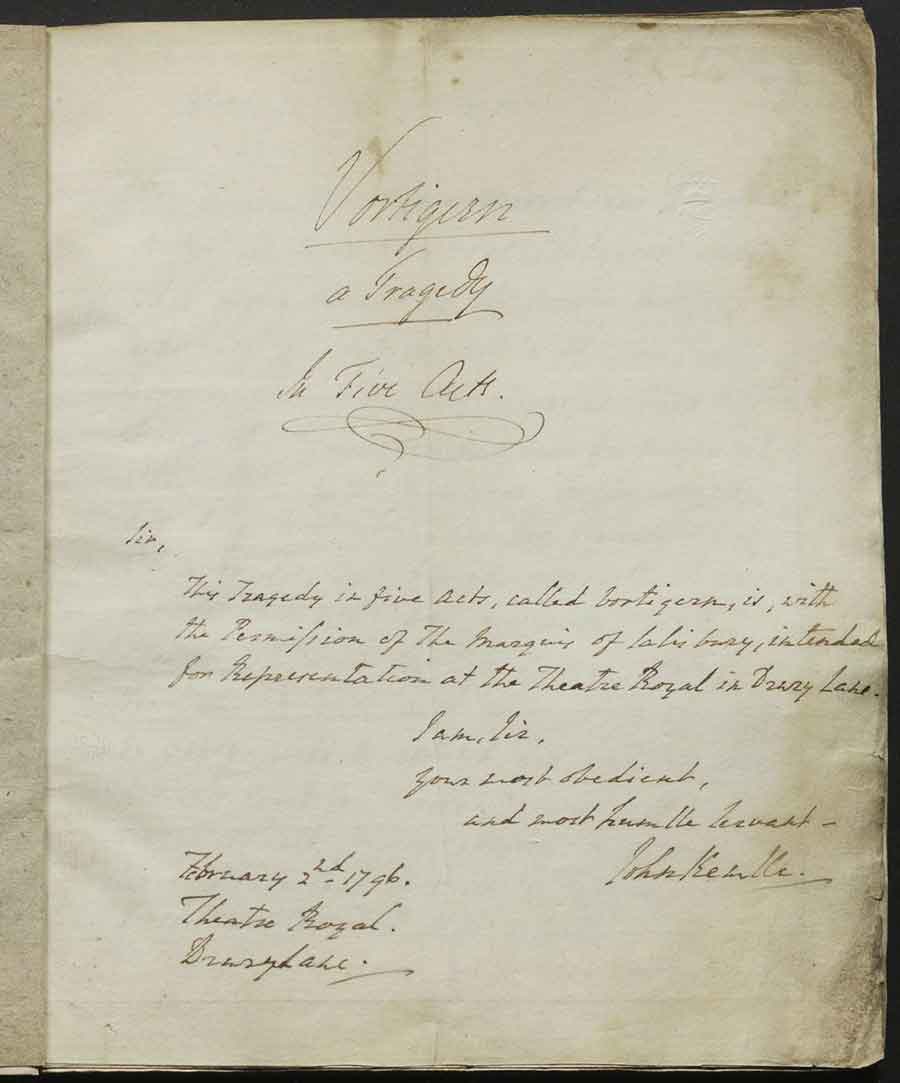 Vortigern
a Tragedy
In Five Acts.
Sir,
This Tragedy in five Acts, called Vortigern, is, with
the Permiſsion of The Marquis of Salisbury, intended
for Representation at the Theatre Royal in Drury Lane.
I am, Sir,
your most obedient,
and most humble Servant –
John Kemble.
February 2nd 1796.
Theatre Royal.
Drury Lane.